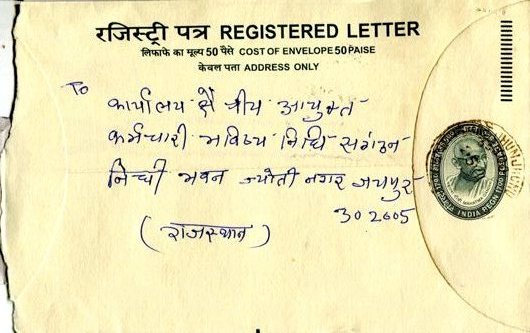 रजिस्ट्री पत्र REGISTERED LETTER
लिफाफे का मूल्य 50 पैसे COST OF ENVELOPE 50 PAISE
केवल पता ADDRESS ONLY
To
कार्यालय क्षैत्रीय आयुक्त
कर्मचारी भविष्य निधि संगठन
निधी भवन ज्योती नगर जयपुर
302005
(राजस्थान)
INDIA REGN 1700 P